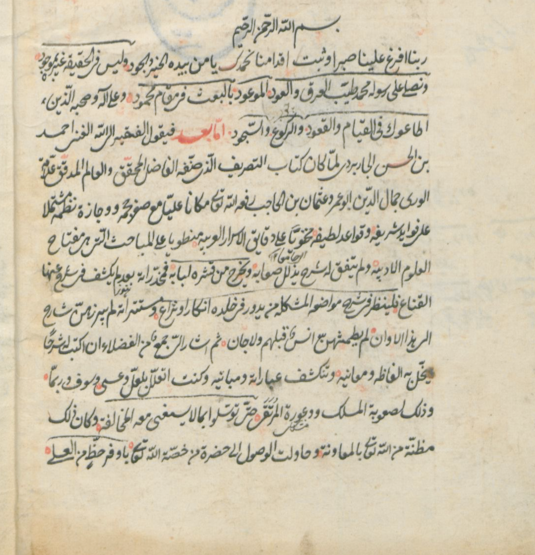 بسم الله الرحمن الرحيم
ربنا افرغ علينا صبرا وثبت اقدامنا نحمدك يا من بيده الخير والجود وليس فى الحقيقة غيره موجود
ونصلى على رسوله محمد طيب العرق والعود الموعود بالبعث فى مقام محمود وعلى آله وصحبه الذين
اطاعوك فى القيام والقعود والركوع والسجود اما بعد فيقول الفقير الى الله الغنى احمد
بن الحسن الجاربردى لما كان كتاب التصريف الذى صنفه الفاضل المحقق والعالم المدقق علامة
الورى جمال الدين ابو عمرو عثمان بن الحاجب تغمده الله تعالى كتابا عليا مع صغر حجمه ووجازة نظمه مشتملا
على فوايد شريفة وقواعد لطيفة محتويا على دقايق الاسرار العربية منطويا على المباحث التى هى مفتاح
العلوم الادبية ولم يتفق له شرح يذلل صعابه ويخرج من قشره لبابه فمخدراته بعد لم يكشف عن وجهها
القناع فلينظر فى شرح مواضعه المشكلة من يدور فى خلده انكار او نزاع ومستتراته لم يبرزهن شارح
الى هذا الاوان لم يطمثهن انس قبلهم ولا جان ثم اشار الى جمع من الفضلاء ان اكتب له شرحا
ينحل به الفاظه ومعانيه وتنكشف عباراته ومبانيه وكنت اتعلل بلعل وعسى وسوف وربما
وذلك لصعوبة المسلك ووعورة المرتقى حتى توسلوا بما لا يسعنى معه المخالفة وكان ذلك
مظنة من الله تعالى بالمعاونة وحاولت الوصول الى حضرة من خصه الله تعالى باوفر حظ من العلى